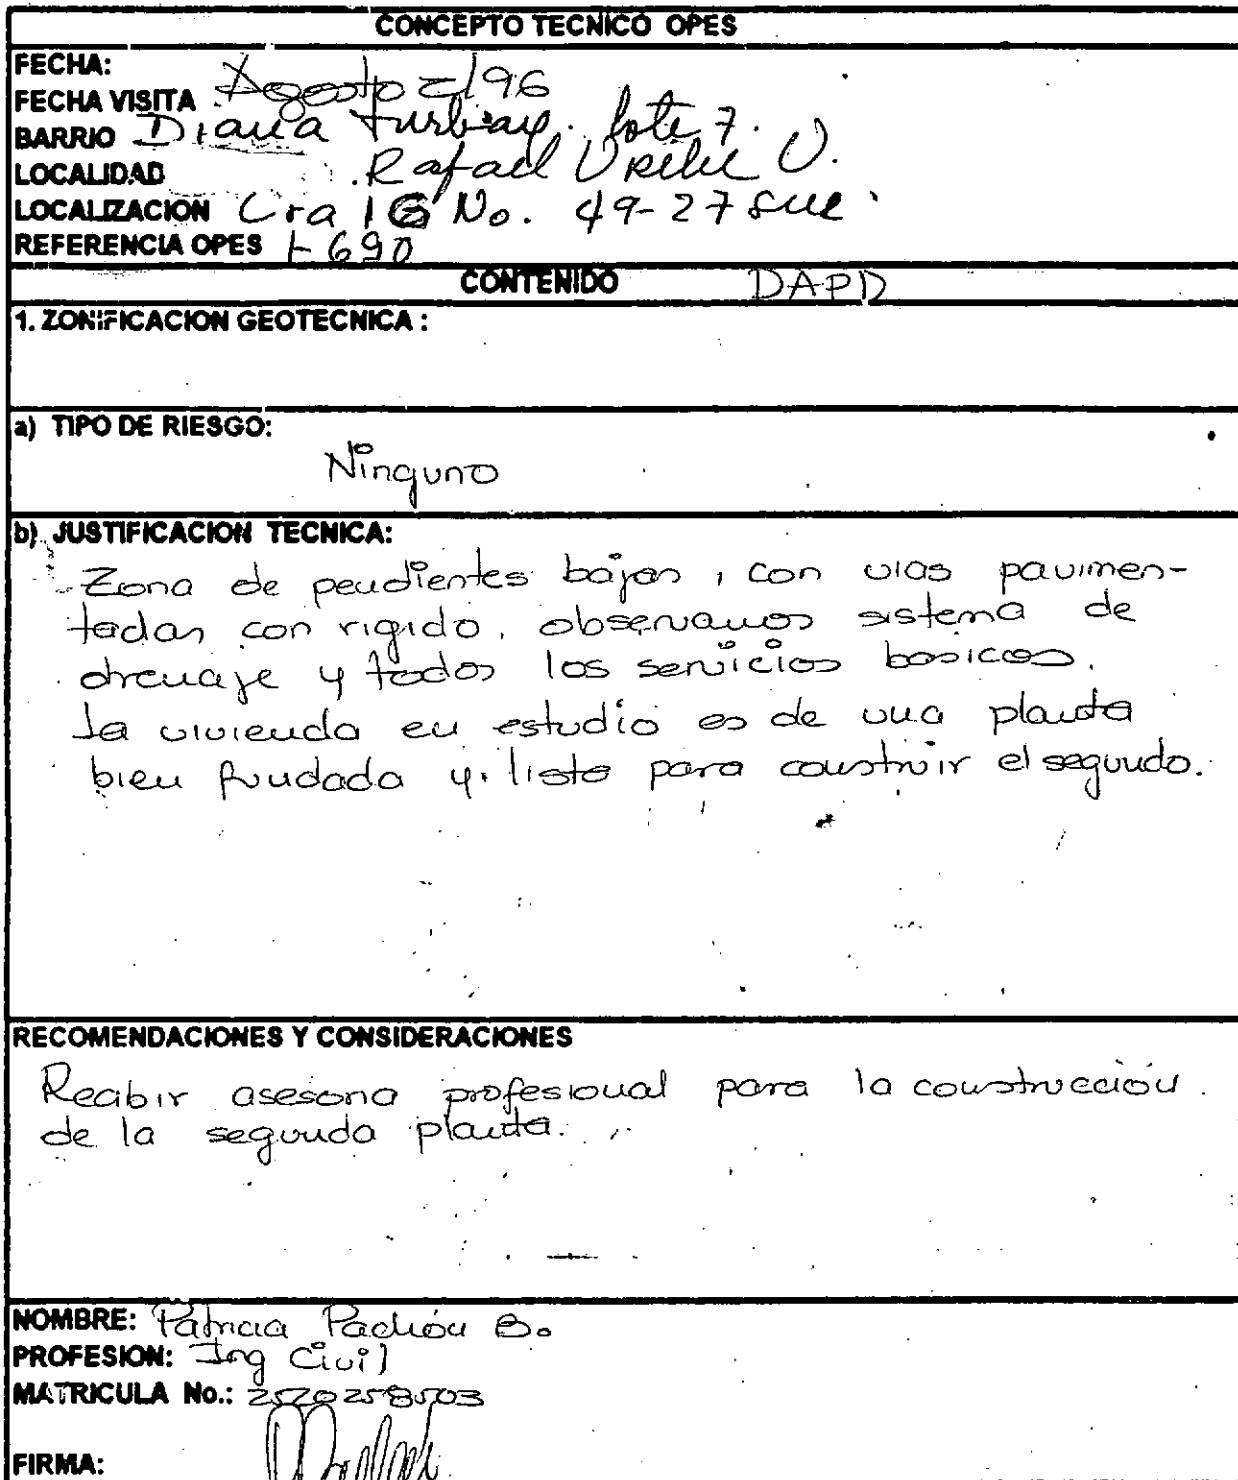 CONCEPTO TECNICO OPES
FECHA:
FECHA VISITA Agosto 2/96
BARRIO Diana Turbay. Lote 7.
LOCALIDAD Rafael Uribe U.
LOCALIZACION Cra 1G No. 49-27 sur.
REFERENCIA OPES 690
CONTENIDO DAPD
1. ZONIFICACION GEOTECNICA :
a) TIPO DE RIESGO:
Ninguno
b) JUSTIFICACION TECNICA:
Zona de pendientes bajas, con vias pavimen-
tadas con rigido, observamos sistema de
drenaje y todos los servicios basicos.
La vivienda en estudio es de una planta
bien fundada y lista para construir el segundo.
RECOMENDACIONES Y CONSIDERACIONES
Recibir asesoria profesional para la construcción
de la segunda planta.
NOMBRE: Patricia Pachón B.
PROFESION: Ing Civil
MATRICULA No.: 2520258503
FIRMA: